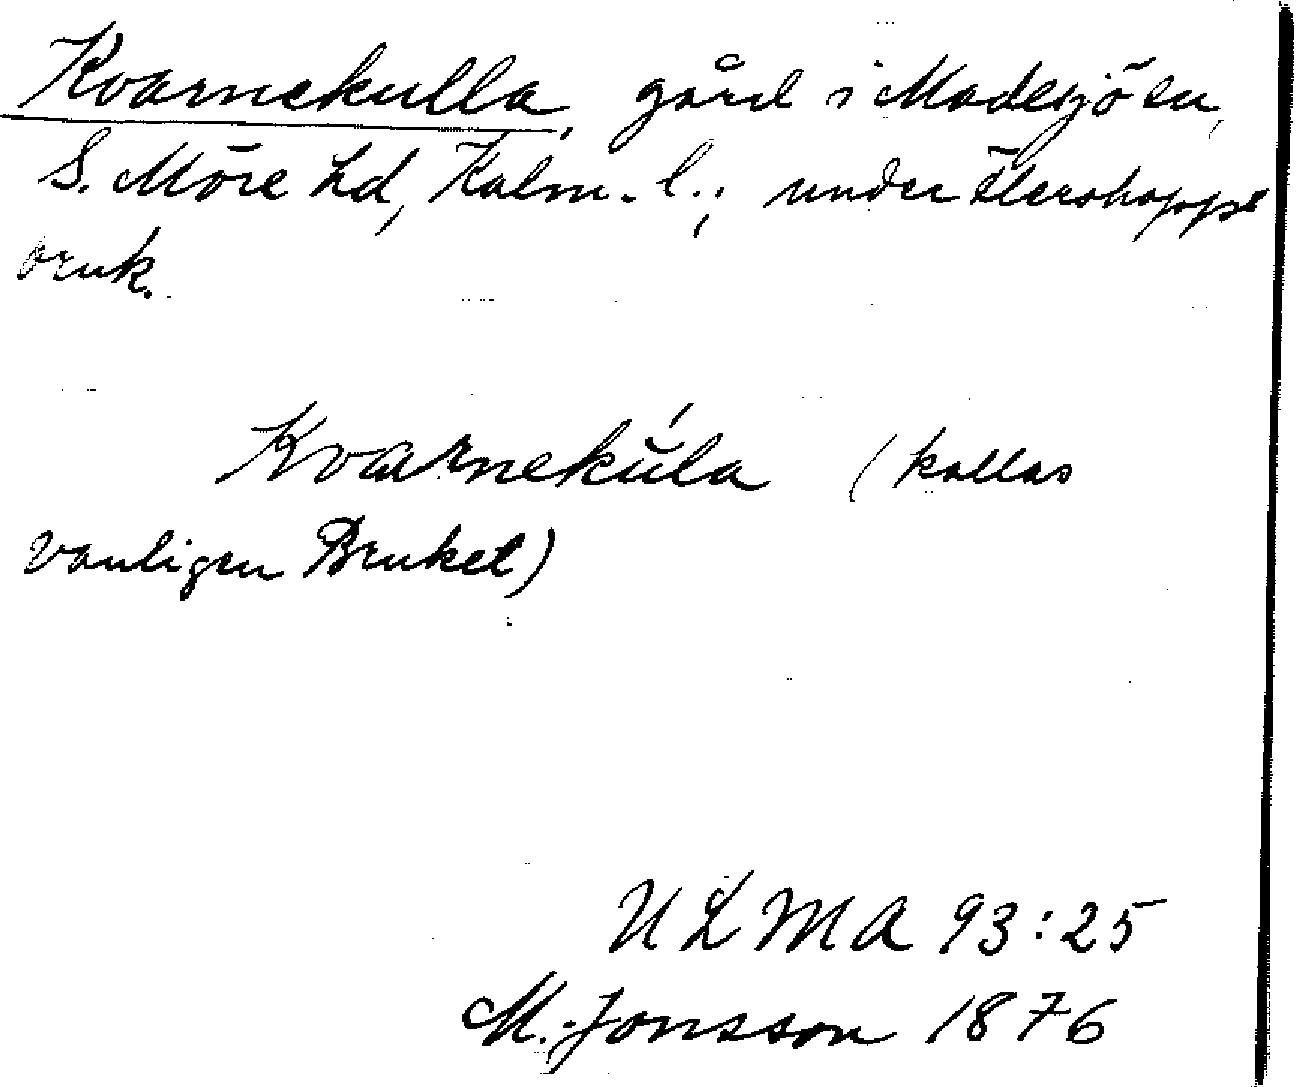 Kvarnekulla, gård i Madesjö sn,
S. Möre hd, Kalm. l.; under Flerohopps
bruk.
Kvarnekúla (kallas
vanligen Bruket)
ULMA 93:25
M. Jonsson 1876